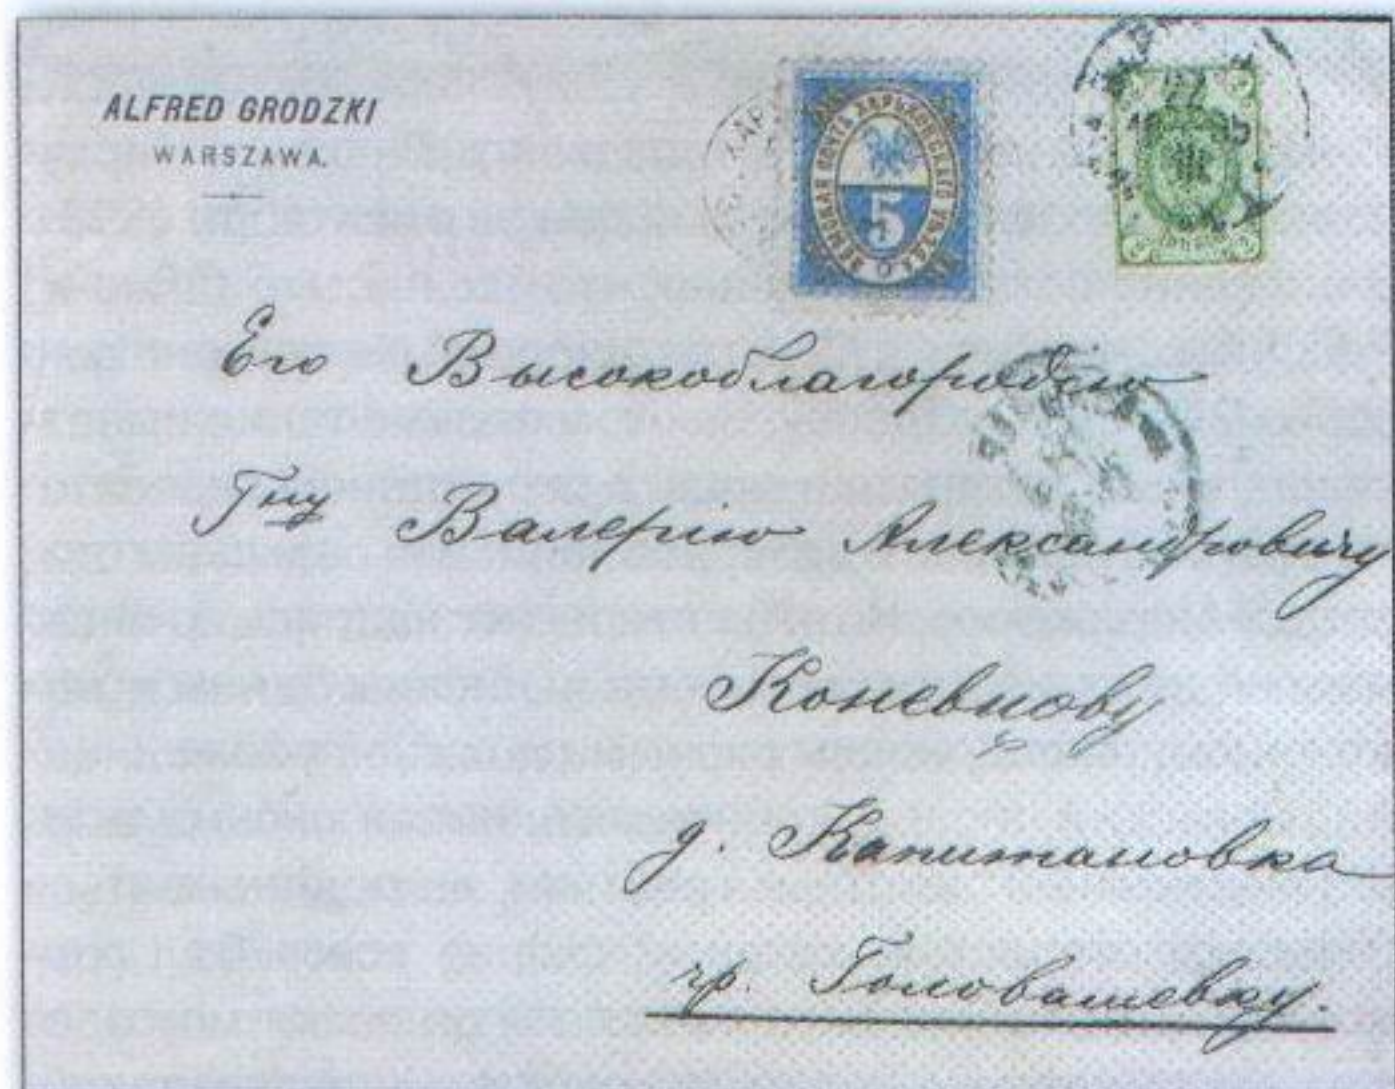 ALFRED GRODZKI
WARSZAWA.
ЗЕМСКАЯ ПОЧТА ХАРЬКОВСКАГО УѢЗДА
5
Его Высокоблагородію
Гну Валерію Александровичу
Коневцову
д. Капитановка
чр. Головашевку.